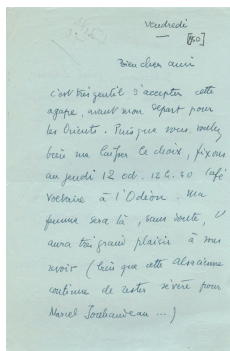 Vendredi
[50]
Bien cher ami
c'est très gentil d'accepter cette
agape, avant mon départ pour
les Orients. Puisque vous voulez
bien me laisser le choix, fixons
au jeudi 12 oct. 12 h. 40 Café
Voltaire à l'Odéon. Ma
femme sera là, sans doute,
aura très grand plaisir à vous
voir (bien que cette alsacienne
continue de rester sévère pour
Marcel Jouhandeau ...)